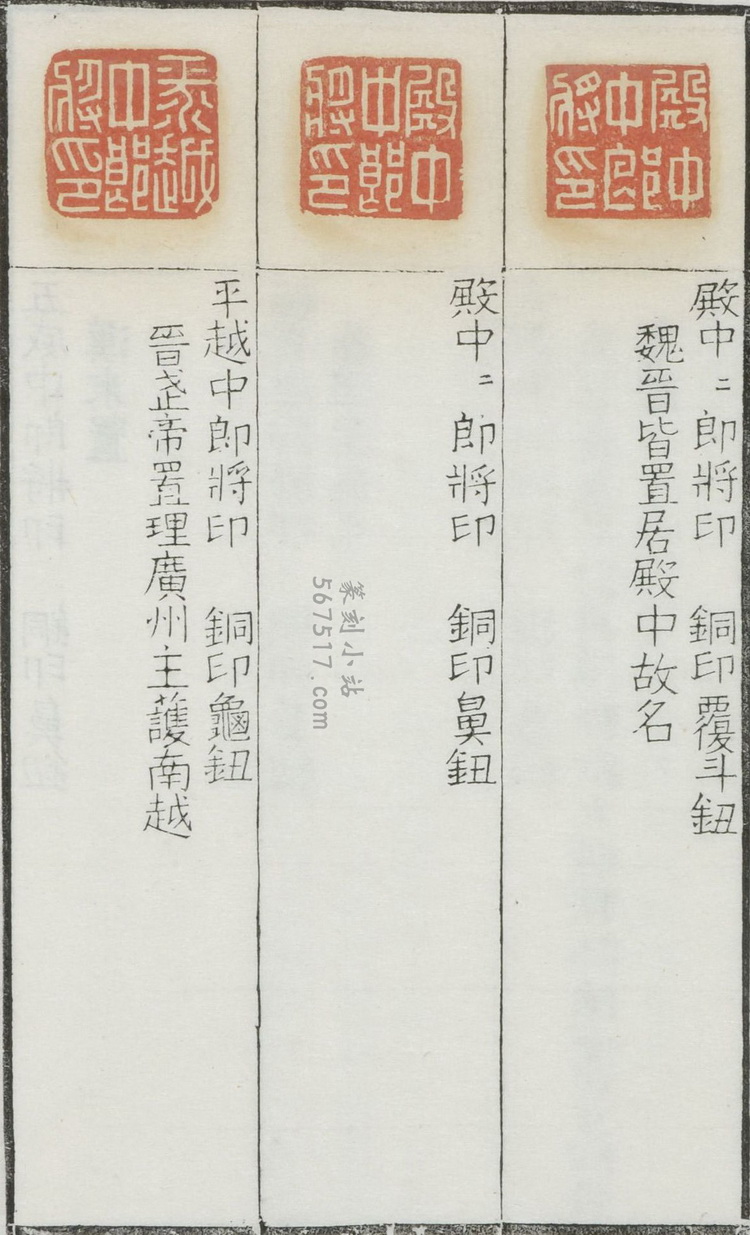 殿中中郎將印
殿中〻郎將印　銅印覆斗鈕
魏晋皆置居殿中故名
殿中中郎將印
殿中〻郎將印　銅印鼻鈕
平越中郎將印
平越中郎將印　銅印龜鈕
晋武帝置理廣州主護南越
篆刻小站
567517.com